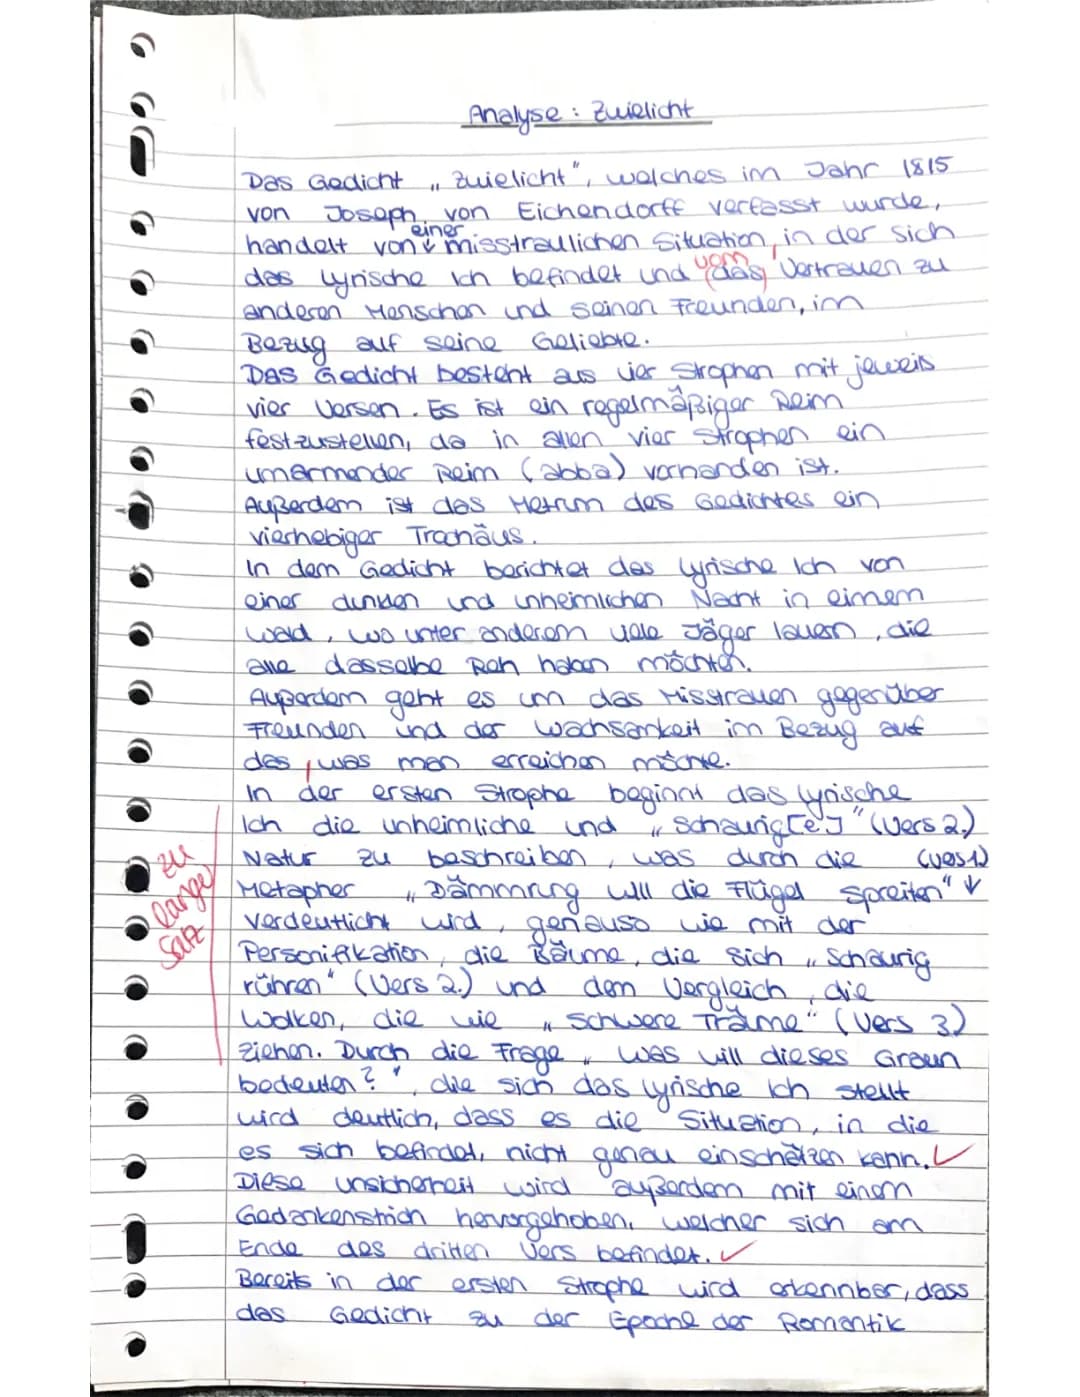 Analyse : Zwielicht
Das Gedicht „Zwielicht", welches im Jahr 1815
von Joseph von Eichendorff verfasst wurde,
einer
handelt von misstraulichen Situation, in der sich
das lyrische Ich befindet und (das) Vertrauen zu
vom
anderen Menschen und seinen Freunden, im
Bezug auf seine Geliebte.
Das Gedicht besteht aus vier Strophen mit jeweils
vier Versen. Es ist ein regelmäßiger Reim
festzustellen, da in allen vier Strophen ein
umarmender Reim (abba) vorhanden ist.
Außerdem ist das Metrum des Gedichtes ein
vierhebiger Trochäus.
In dem Gedicht berichtet das lyrische Ich von
einer dunklen und unheimlichen Nacht in einem
Wald, wo unter anderem viele Jäger lauern, die
alle dasselbe Reh haben möchten.
Außerdem geht es um das Misstrauen gegenüber
Freunden und der Wachsamkeit im Bezug auf
das, was man erreichen möchte.
In der ersten Strophe beginnt das lyrische
Ich die unheimliche und „schaurig[e]" (Vers 2.)
Natur zu beschreiben, was durch die (Vers 1)
Metapher „Dämmrung will die Flügel spreiten"
verdeutlicht wird, genauso wie mit der
Personifikation, die Bäume, die sich „schaurig
rühren" (Vers 2.) und dem Vergleich, die
Wolken, die wie „schwere Träume" (Vers 3)
ziehen. Durch die Frage „Was will dieses Graun
bedeuten?", die sich das lyrische Ich stellt
wird deutlich, dass es die Situation, in die
es sich befindet, nicht genau einschätzen kann.
Diese Unsicherheit wird außerdem mit einem
Gedankenstrich hervorgehoben, welcher sich am
Ende des dritten Vers befindet.
Bereits in der ersten Strophe wird erkennbar, dass
das Gedicht zu der Epoche der Romantik
zu
lange
Satz